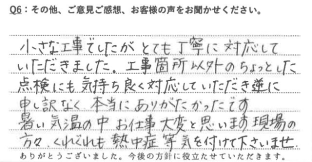 Q6：その他、ご意見ご感想、お客様の声をお聞かせください。
小さな工事でしたがとても丁寧に対応して
いただきました。工事箇所以外のちょっとした
点検にも気持ち良く対応していただき逆に
申し訳なく本当にありがたかったです
暑い気温の中お仕事大変と思います現場の
方々くれぐれも熱中症等気を付けて下さいませ
ありがとうございました。今後の方針に役立たせていただきます。